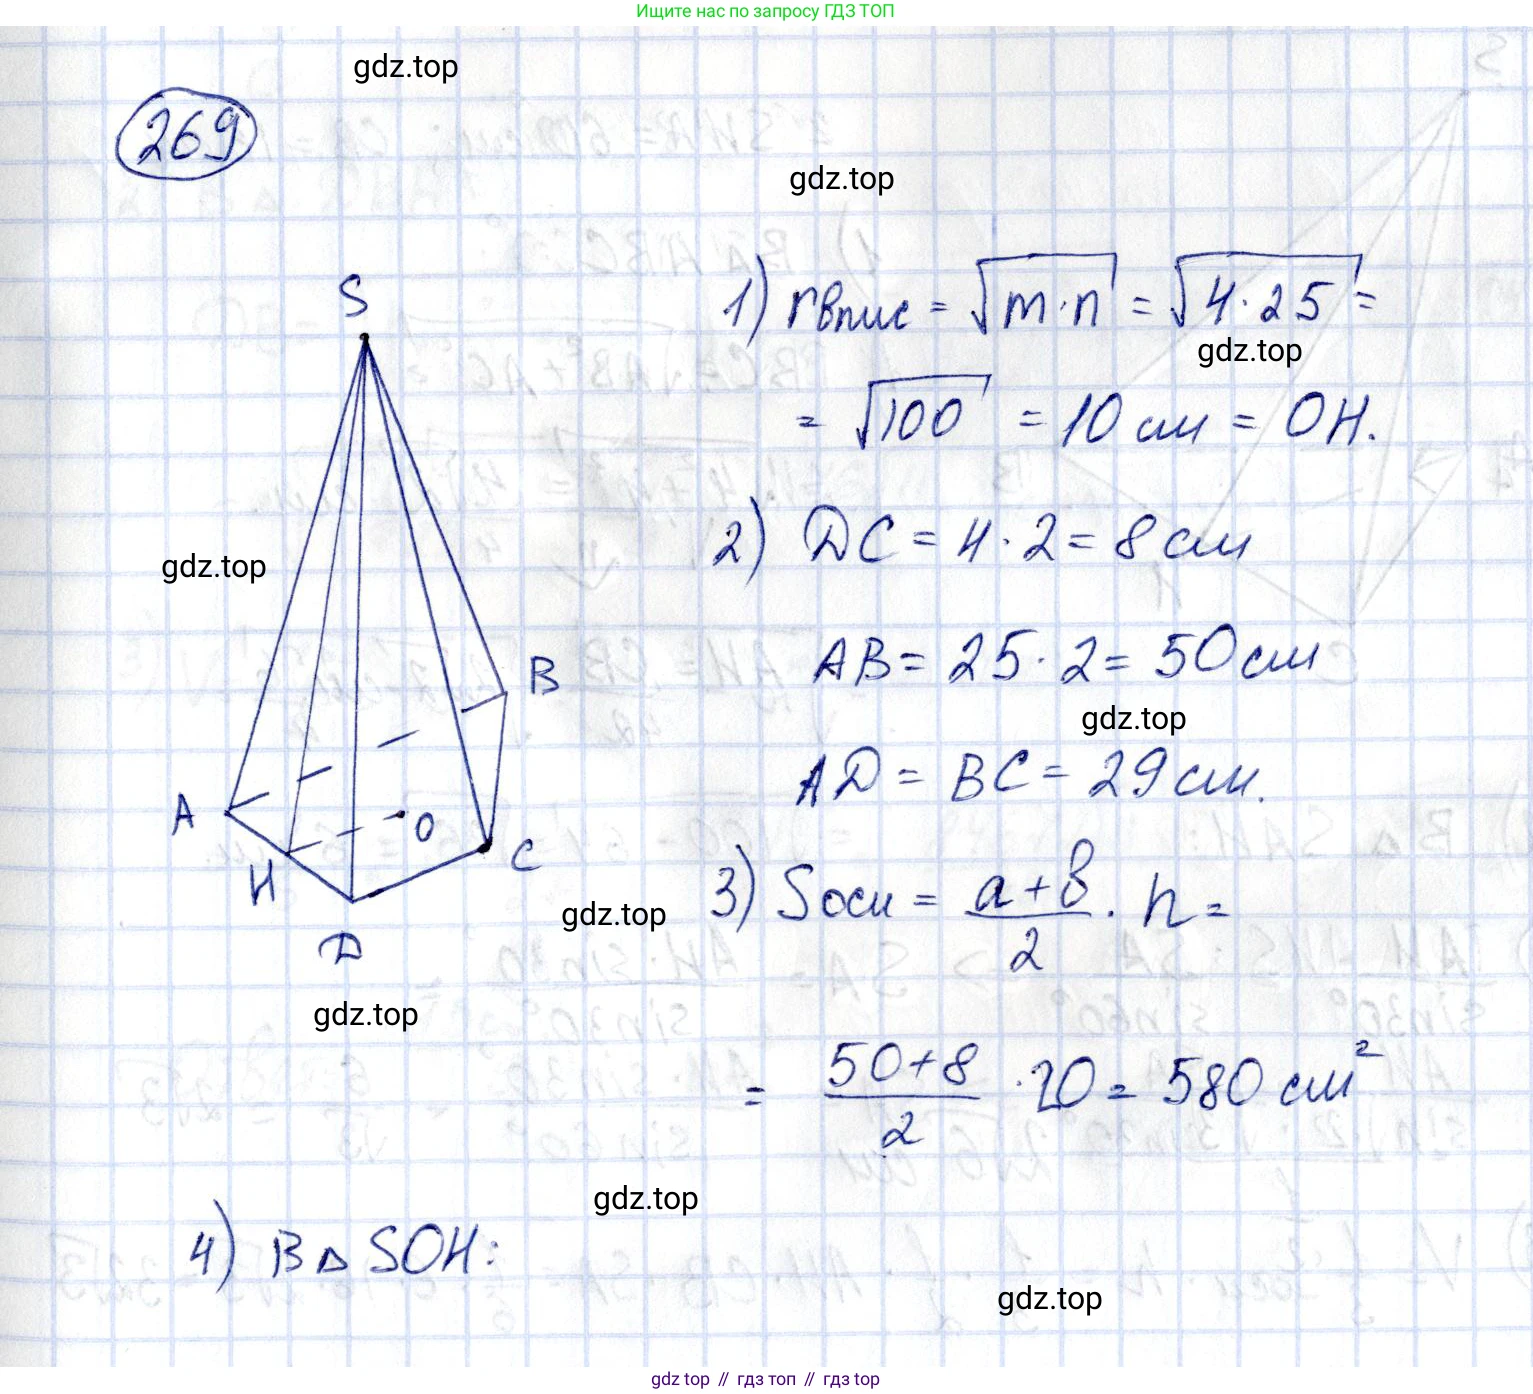 Ищите нас по запросу ГДЗ ТОП
gdz.top
269
gdz.top
S
1) rвпис = √m·n = √4·25 =
gdz.top
= √100 = 10 см = OH.
2) DC = 4·2 = 8 см
gdz.top
AB = 25·2 = 50 см
B
gdz.top
AD = BC = 29 см.
A
O
C
H
3) Sосн = a+b/2 · h =
gdz.top
D
gdz.top
= 50+8/2 · 20 = 580 см²
gdz.top
4) В △ SOH:
gdz.top
gdz.top // гдз топ // гдз top